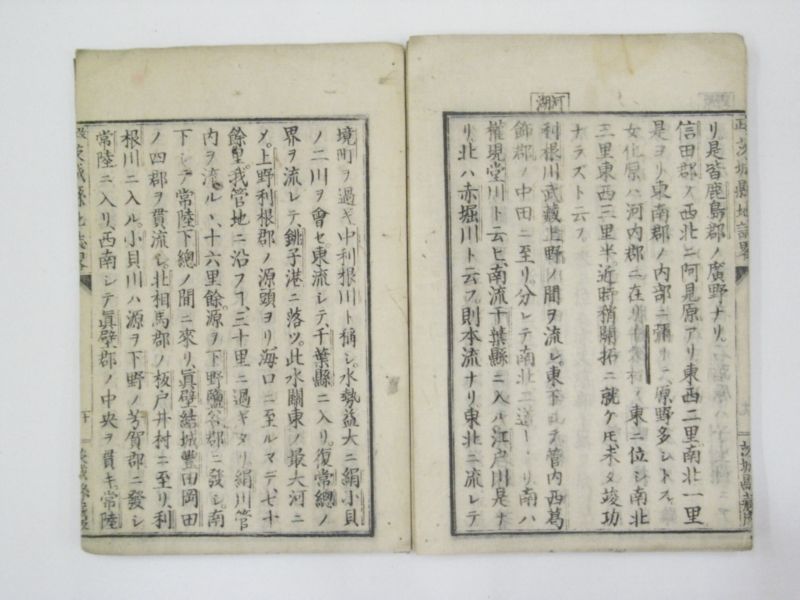 河湖
リ是皆鹿島郡ノ廣野ナリ
信田郡ノ西北ニ阿見原アリ東西二里南北一里
是ヨリ東南郡ノ内部ニ彌リ原野多シトス
女化原ハ河内郡ニ在リ 東ニ位シ南北
三里東西三里半近時稍開拓ニ就ケ𪜈未タ竣功
ナラスト云フ
利根川武藏上野ノ間ヲ流レ東下シテ管内西葛
飾郡ノ中田ニ至リ分レテ南北二道 リ南ハ
權現堂川ト云ヒ南流千葉縣ニ入ル江戸川是ナ
リ北ハ赤堀川ト云フ則本流ナリ東北ニ流レテ
境町ヲ過ギ中利根川ト稱シ水勢益大ニ絹小貝
ノ二川ヲ會セ東流シテ千葉縣ニ入リ復常總ノ
界ヲ流レテ銚子港ニ落ツ此水關東ノ最大河ニ
〆上野利根郡ノ源頭ヨリ海口ニ至ルマデ七十
餘里我管地ニ沿フヿ三十里ニ過ギタリ絹川管
内ヲ流ルヽ十六里餘源ヲ下野鹽谷郡ニ發シ南
下シテ常陸下總ノ間ニ來リ眞壁結城豐田岡田
ノ四郡ヲ貫流シ北相馬郡ノ板戸井村ニ至リ利
根川ニ入ル小貝川ハ源ヲ下野ノ芳賀郡ニ發シ
常陸ニ入リ西南シテ眞壁郡ノ中央ヲ貫キ常陸